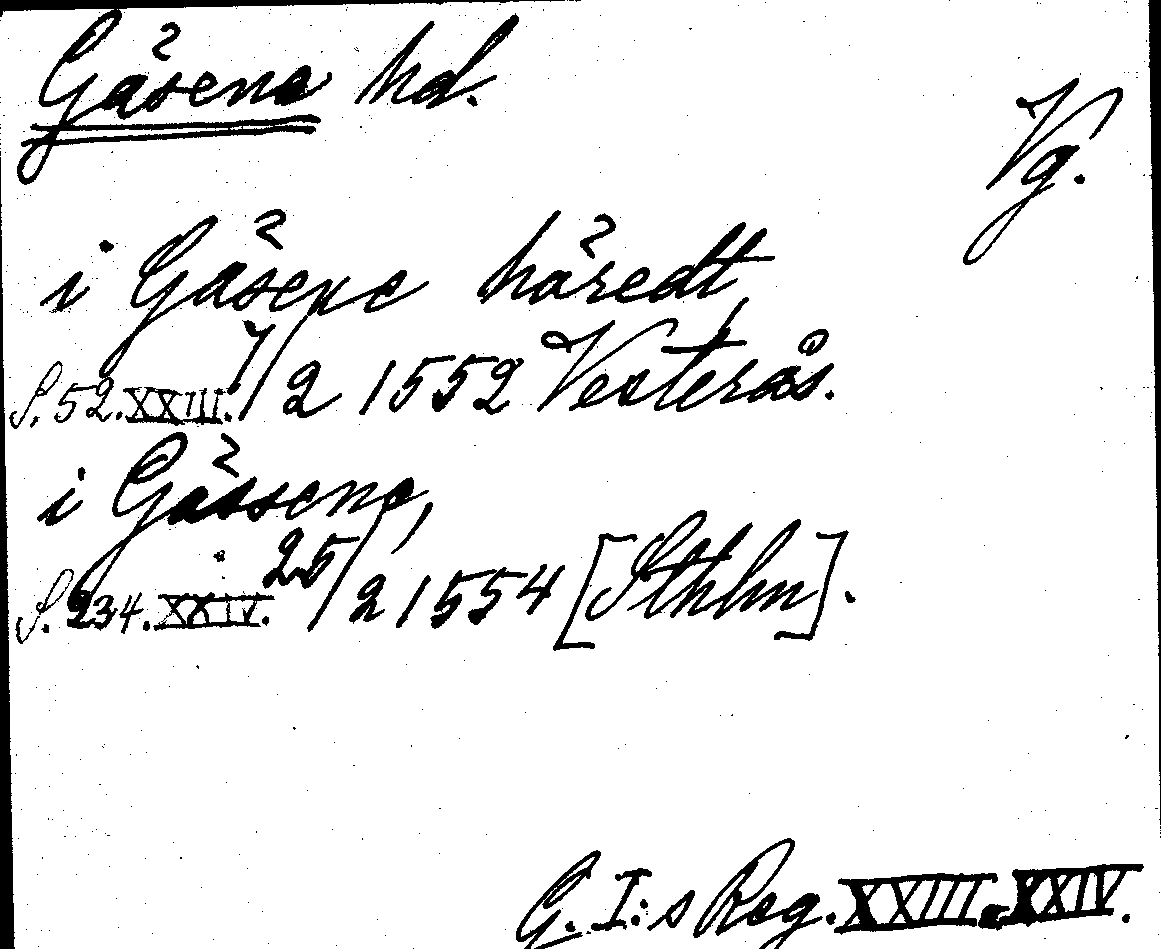 Gåsene hd.
Vg.
i Gåsene håredt,
S. 52. XXIII. 7/2 1552 Vesterås.
i Gåssene,
S. 234. XXIV. 25/2 1554 [Sthlm].
G. I:s Reg. XXIII. XXIV.